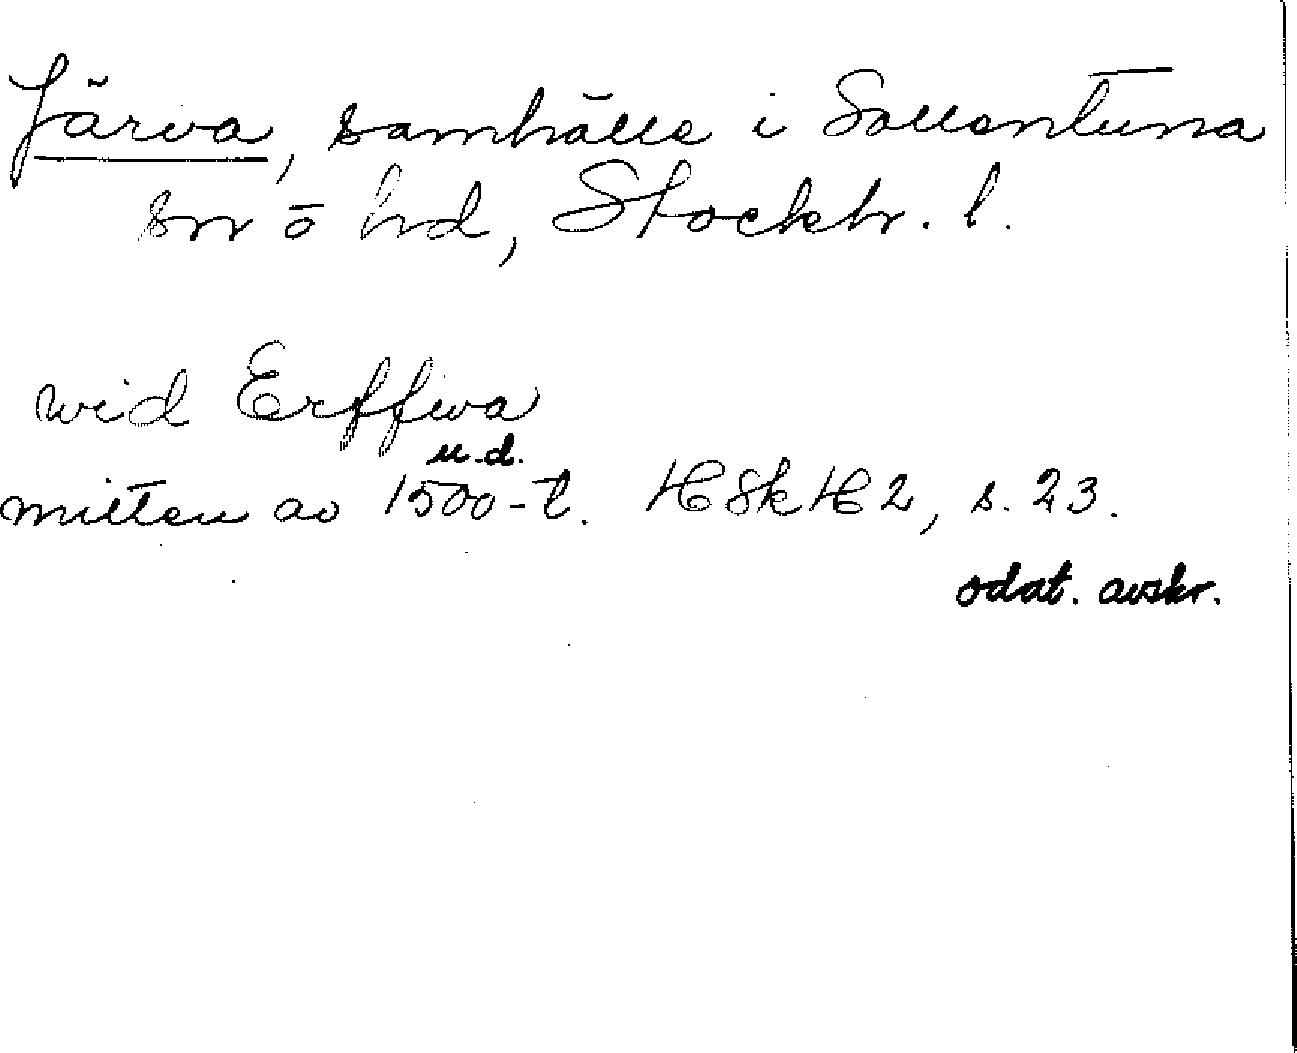 Järva, samhälle i Sollentuna
sn o hd, Stockh. l.
wid Erffwa
u.d.
mitten av 1500-t. HSkH 2, s. 23.
odat. avskr.